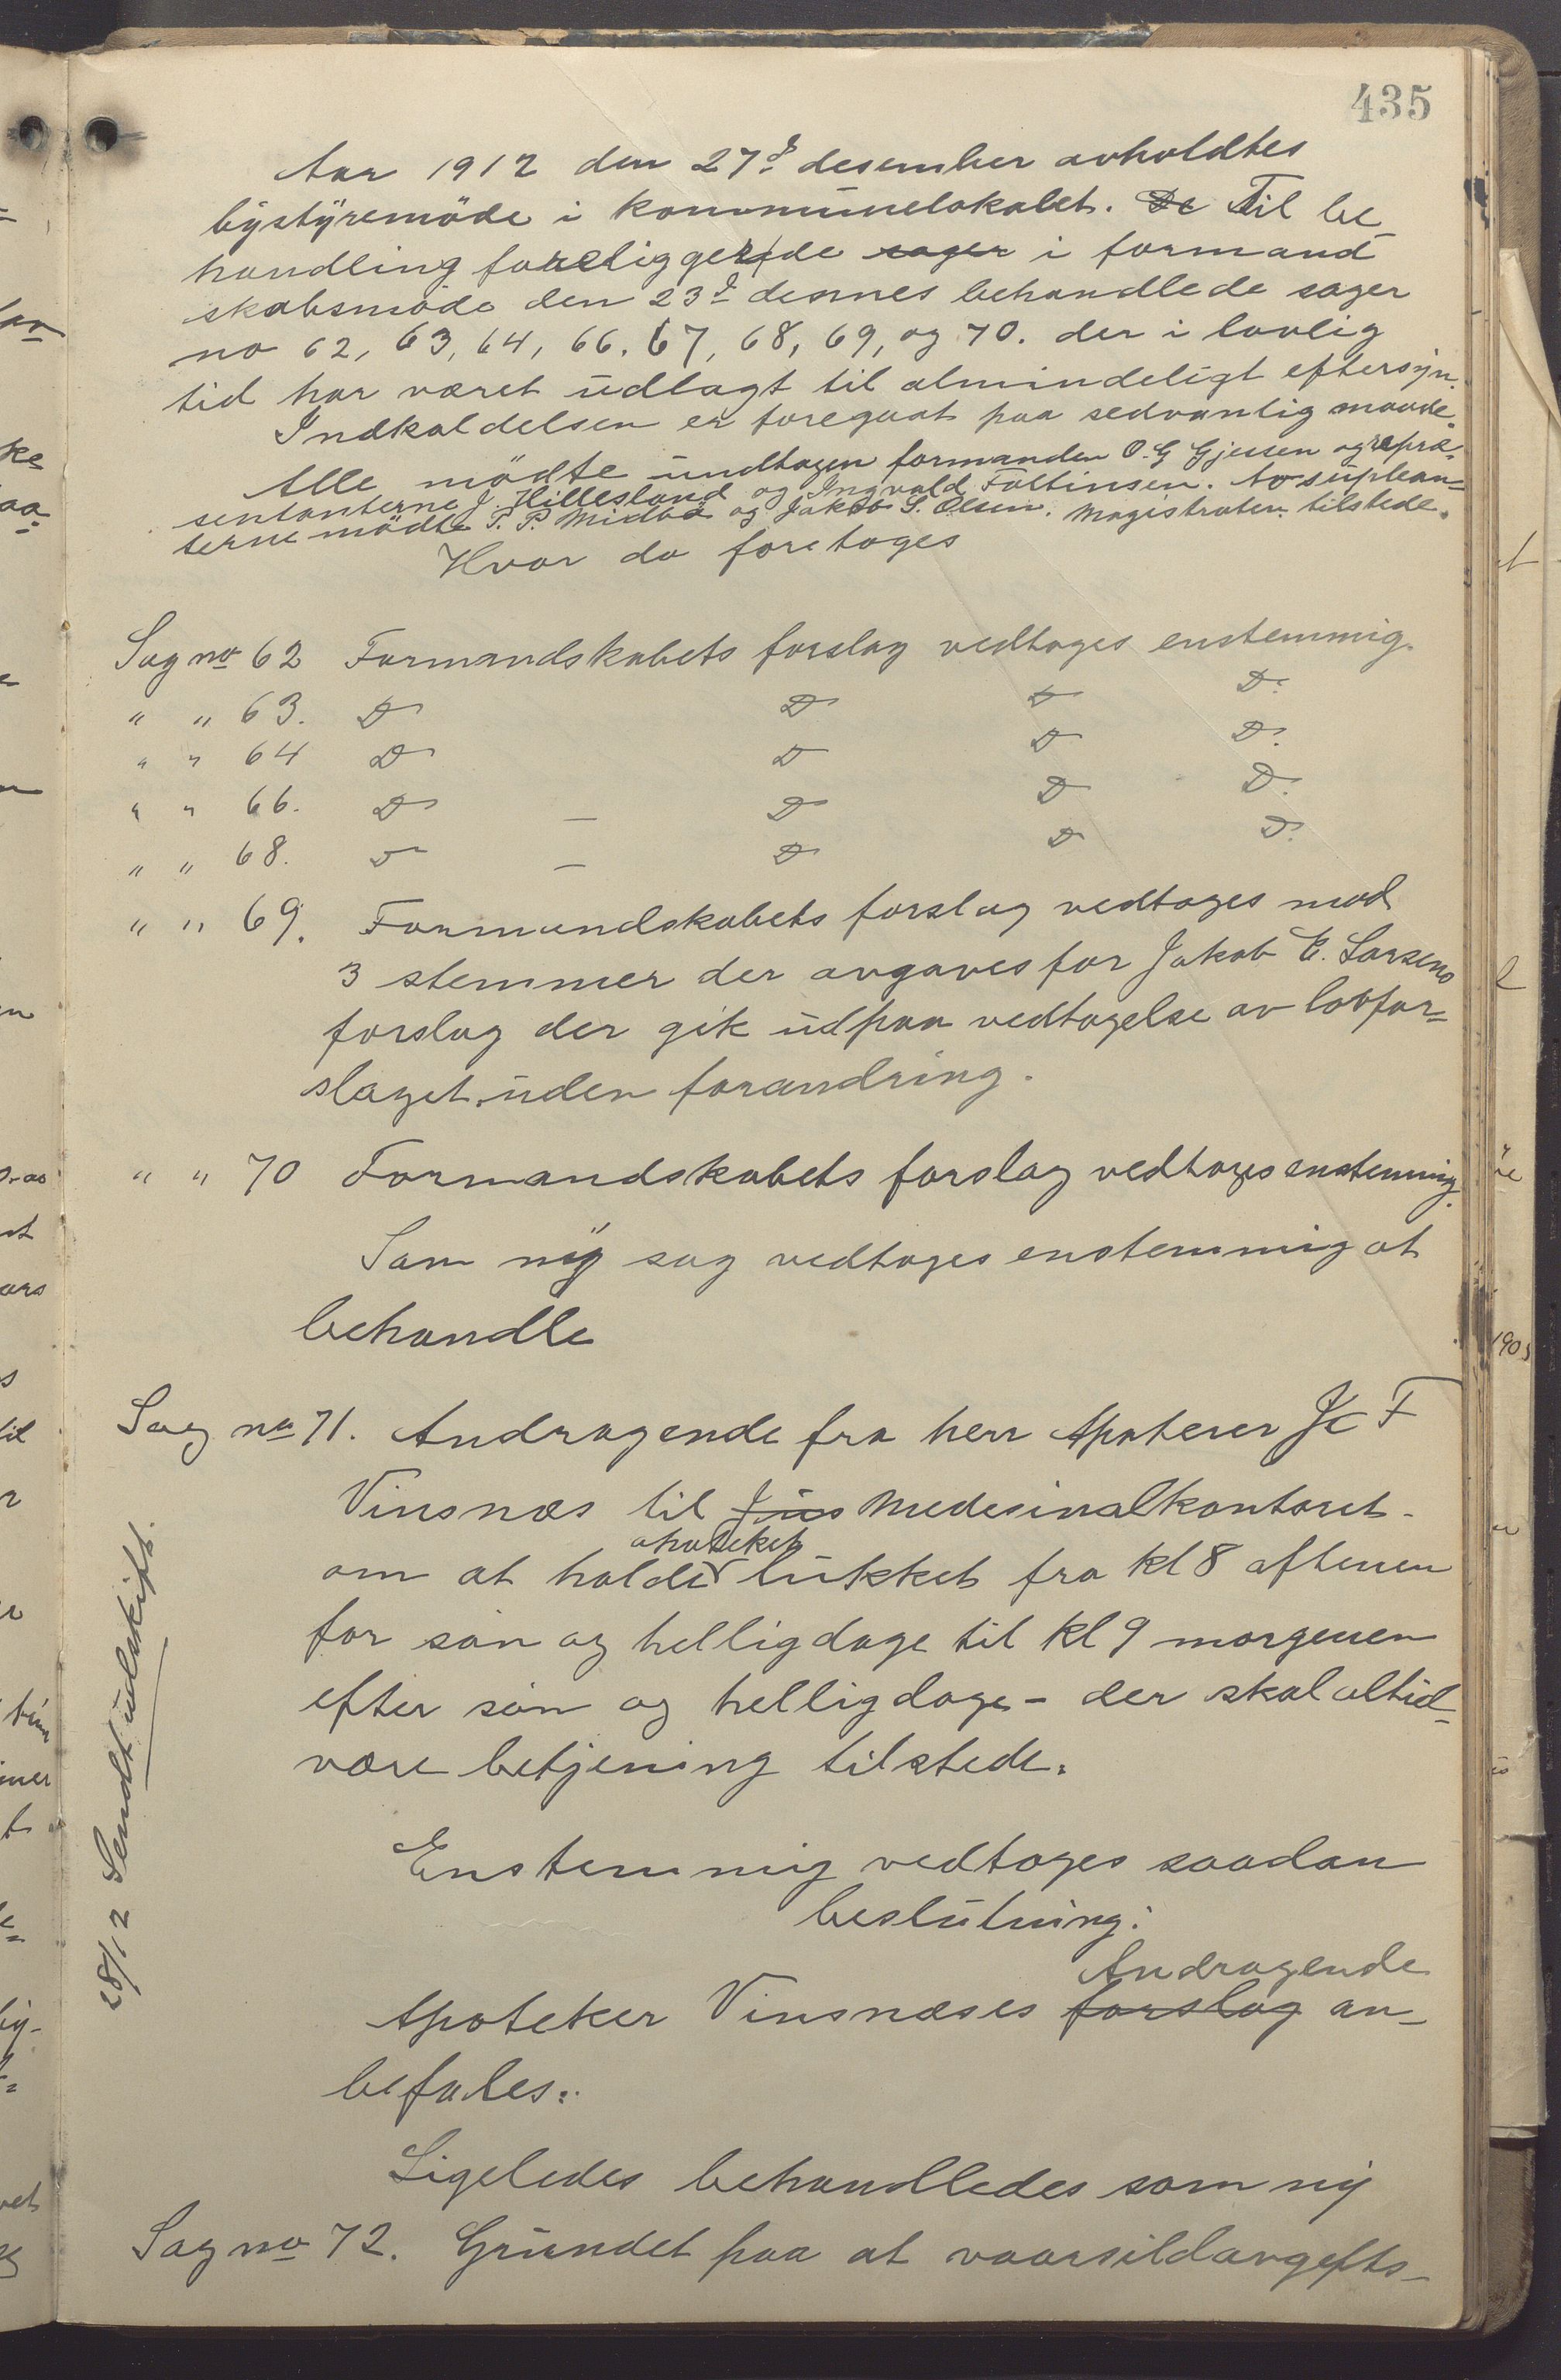 435
Aar 1912 den 27d desember avholdtes
bystyremöde i kommunelokalet. De Til be
handling foreliggende sager i formand
skabsmöde den 23d dennes behandlede sager
no 62, 63, 64, 66. 67, 68, 69, og 70. der i lovlig
tid har været udlagt til almindeligt eftersyn.
Indkaldelsen er foregaat paa sedvanlig maade.
Alle mödte undtagen formanden O. G Gjessen og repræ-
sentanterne J. Hillesland og Ingvald Foltinsen. Av suplean-
terne mödte T. P. Midbö og Jakob S. Olsen. Magistraten tilstede.
Hvor da foretoges
Sag no 62 Formandskabets forslag vedtoges enstemmig.
" " 63. D D D D.
" " 64 D D D D.
" " 66. D — D D D.
" " 68. D — D D D.
" " 69. Formandskabets forslag vedtoges mod
3 stemmer der avgaves for Jakob E. Larsens
forslag der gik ud paa vedtagelse av lovfor-
slaget uden forandring.
" " 70 Formandskabets forslag vedtoges enstemmig.
Som ny sag vedtoges enstemmig at
behandle
Sag no 71. Andragende fra herr Apoterer F
Vinsnæs til Jus Medesinalkontoret
apoteket
om at holde lukket fra kl 8 aftenen
for sön og helligdage til kl 9 morgenen
efter sön og helligdage - der skal altid
være betjening tilstede.
28/12 Sendt udskrift.
Enstemmig vedtoges saadan
beslutning:
Andragende
Apoteker Vinsnæses forslag an-
befales.
Ligeledes behandledes som ny
Sag no 72. Grundet paa at vaarsildavgefts-